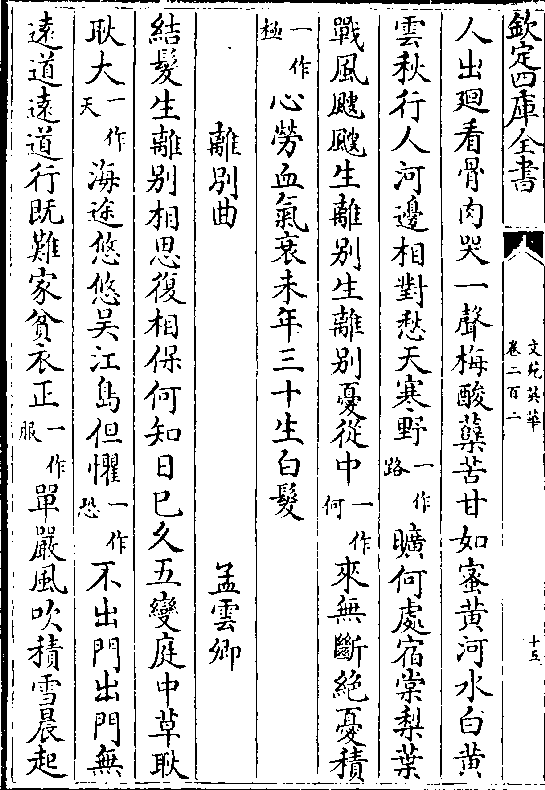 欽定四庫全書
文苑英華
卷二百二
十五
人出廻看骨肉哭一聲梅酸蘗苦甘如蜜黄河水白黄
雲秋行人河邊相對愁天寒野一作路曠何處宿棠梨葉
戰風颼颼生離别生離别憂從中一作何來無斷絶憂積
一作極心勞血氣衰未年三十生白髮
離别曲
孟雲卿
結髮生離别相思復相保何知日已久五變庭中草耿
耿大一作天海途悠悠吴江島但懼一作恐不出門出門無
遠道遠道行既難家貧衣正一作服單嚴風吹積雪晨起